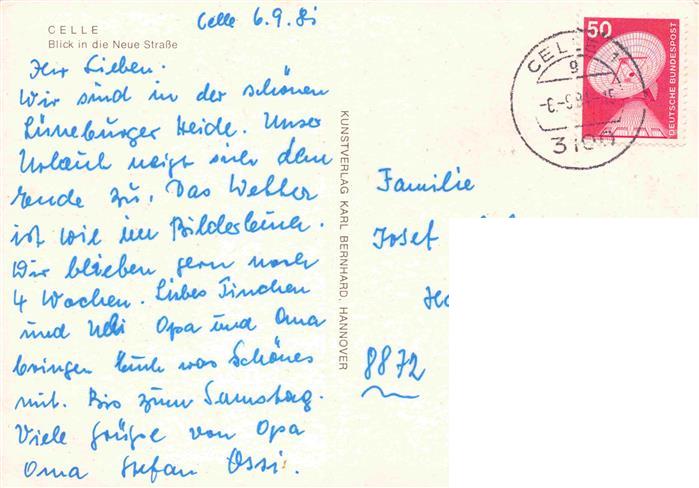 CELLE
Blick in die Neue Straße
Celle 6.9.81
Ihr Lieben.
Wir sind in der schönen
Lüneburger Heide. Unser
Urlaub neigt sich dem
Ende zu. Das Wetter
ist wie im Bilderbuch.
Wir blieben gern noch
4 Wochen. Liebes Tinchen
und Udi Opa und Oma
bringen Euch was Schönes
mit. Bis zum Samstag.
Viele Grüße von Opa
Oma Stefan Ossi.
KUNSTVERLAG KARL BERNHARD, HANNOVER
50
DEUTSCHE BUNDESPOST
CELLE 1
g
3100
Familie
Josef
8872